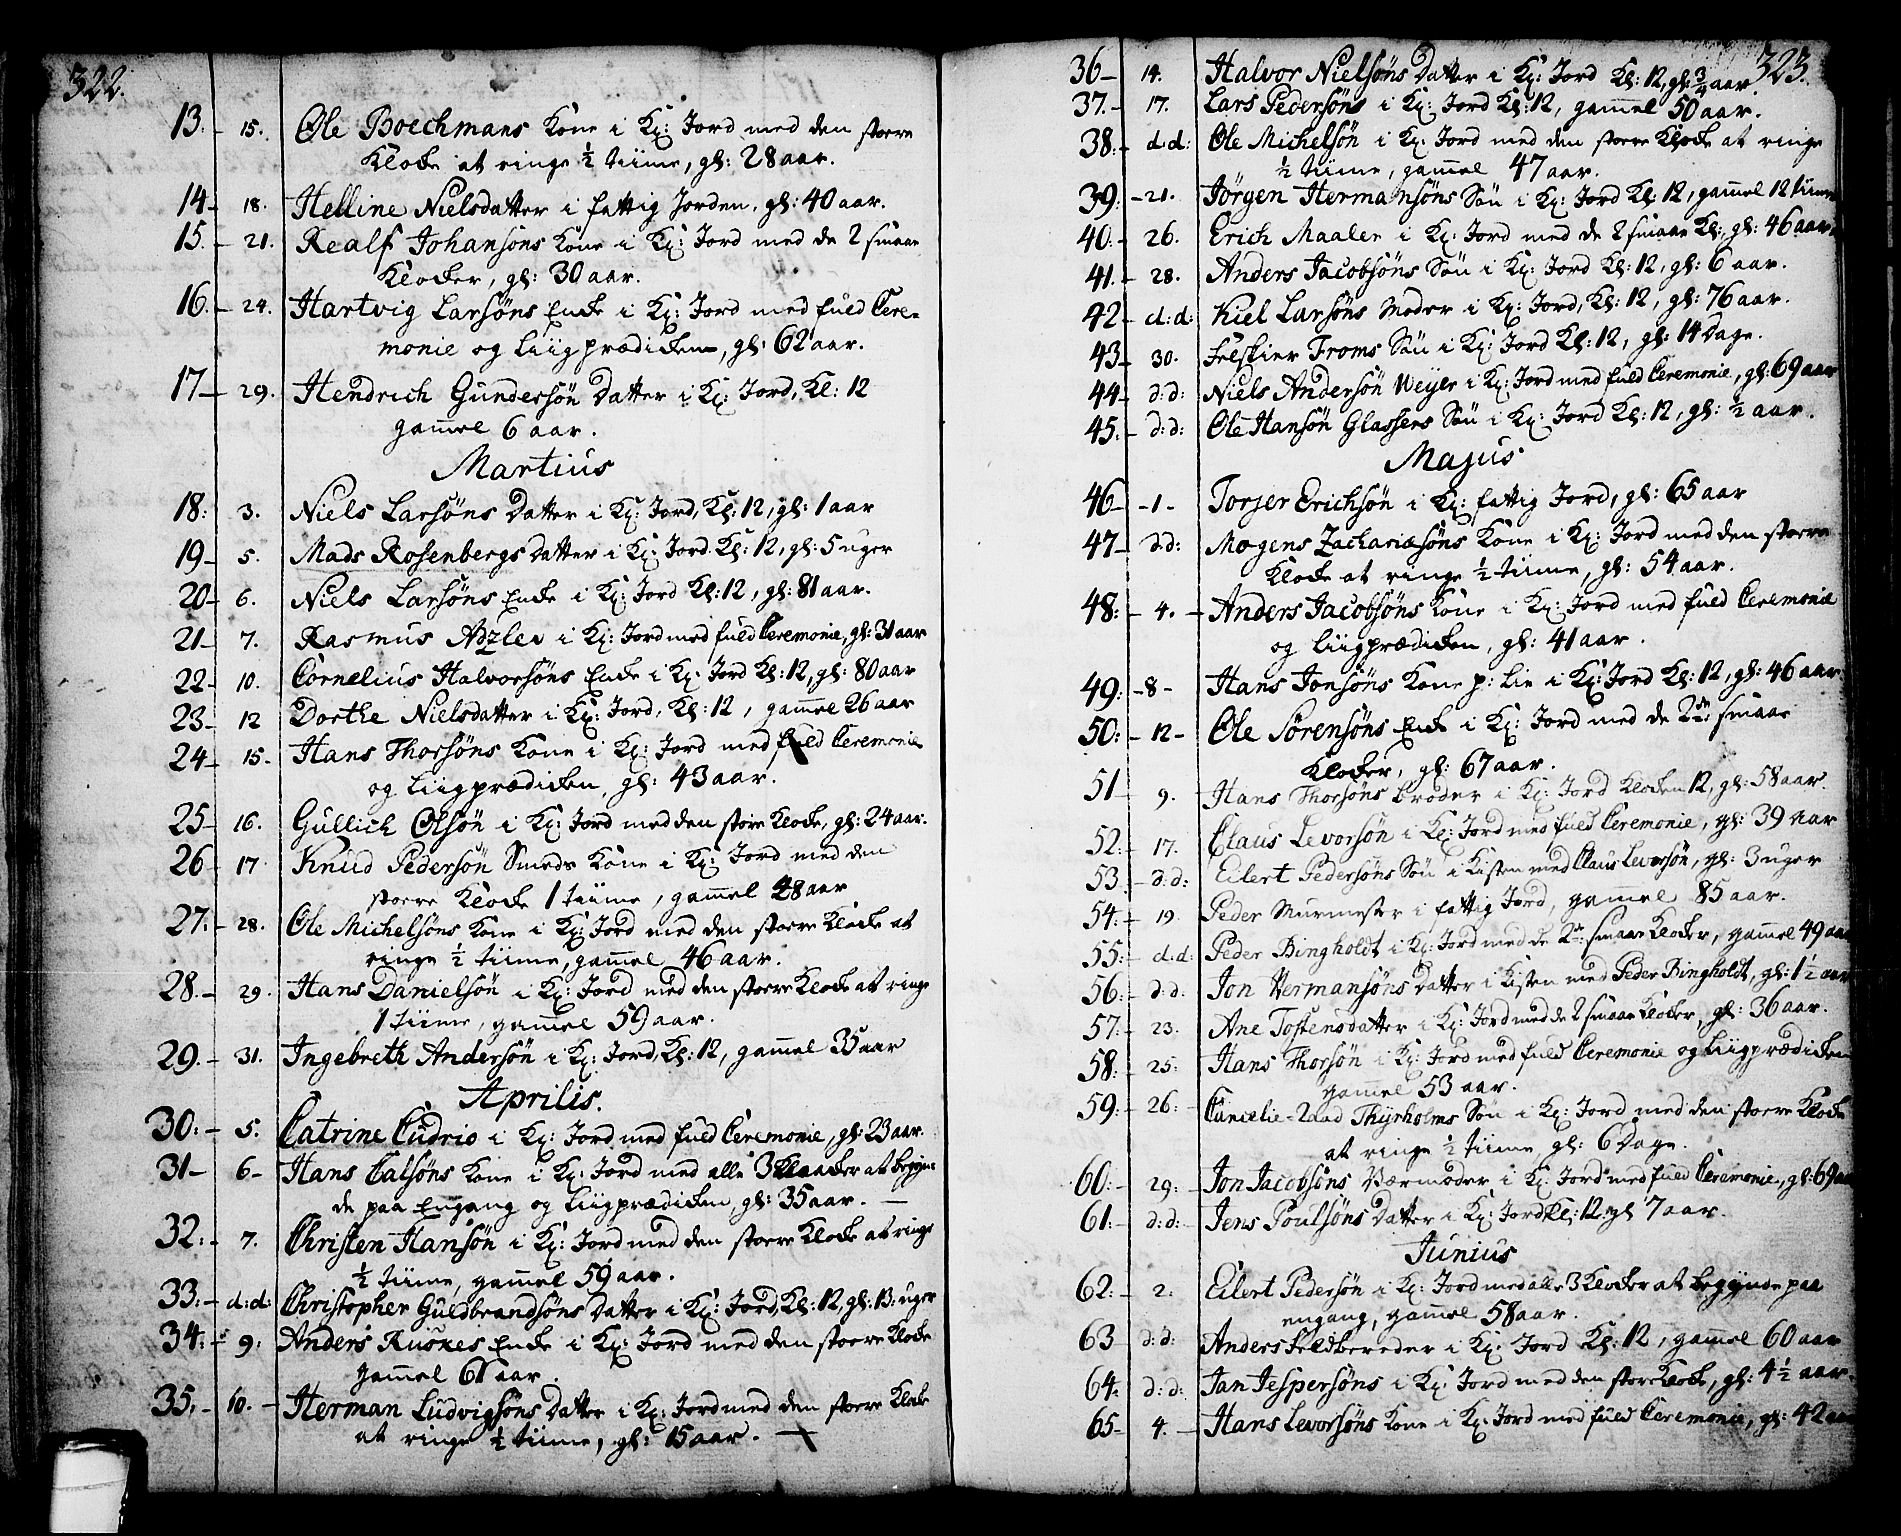 322.
13. - 15. Ole Boechmans Kone i Kχ: Jord med den storre
Klocke at ringe ½ tiime, gl: 28 aar.
14 - 18. Helline Nielsdatter i fattig Jorden, gl: 40 aar.
15. - 21. Realf Johansöns Kone i Kχ: Jord med de 2 smaae
Klocker, gl: 30 aar.
16. - 24. Hartvig Larsöns Encke i Kχ: Jord med fuld Cere-
monie og Liigprædicken, gl: 62 aar.
17 - 29. Hendrich Gundersön Datter i Kχ: Jord, Kl: 12
gam̄el 6 aar.
Martius
18: 3. Niels Larsöns Datter i Kχ: Jord, Kl: 12, gl: 1 aar
19 - 5. Mads Rosenbergs Datter i Kχ: Jord. Kl: 12, gl: 5 uger
20 - 6. Niels Larsöns Encke i Kχ: Jord Kl: 12, gl: 81 aar.
21 - 7. Rasmus Adzlev i Kχ: Jord med fuld Ceremonie, gl: 31 aar
22 - 10. Cornelius Halvorsöns Encke i Kχ: Jord Kl: 12, gl: 80 aar
23 - 12 Dorthe Nielsdatter i Kχ: Jord, Kl: 12, gam̄el 26 aar
24 - 15 - Hans Thorsöns Kone i Kχ: Jord med fuld Ceremonie
og Liigprædicken, gl: 43 aar.
25 - 16. Gullich Olsön i Kχ: Jord med den store Klocke, gl: 24 aar.
26 - 17 Knud Pedersön Smeds Kone i Kχ: Jord med den
storre Klocke 1 tiime, gam̄el 48 aar
27: - 28. Ole Michelsöns Kone i Kχ: Jord med den storre Klocke at
ringe ½ tiime, gam̄el 46 aar.
28. - 29. Hans Danielsön i Kχ: Jord med den storre Klocke at ringe
1 tiime, gam̄el 59 aar.
29. - 31. Ingebreth Andersön i Kχ: Jord, Kl: 12, gam̄el 35 aar
Aprilis.
30: - 5. Catrine Cudrio i Kχ: Jord med fuld Ceremonie, gl: 23 aar.
31 - 6 - Hans Calsöns Kone i Kχ: Jord med alle 3 Klocker at begyn=
de paa Engang og Liigprædicken, gl: 35 aar. -
32: - 7. Christen Hansön i Kχ: Jord med den storre Klocke at ringe
½ tiime, gam̄el 59 aar.
33: - d: d: Christopher Guldbrandsöns Datter i Kχ: Jord, Kl: 12, gl: 13: uger
34: - 9: Anders Ruskes Encke i Kχ: Jord med den storre Klocke
gam̄el 61 aar.
35. - 10. - Herman Ludvigsöns Datter i Kχ: Jord med den storre Klocke
at ringe ½ tiime, gl: 15 aar.
323.
36 - 14. Halvor Nielsöns Datter i Kχ: Jord Kl: 12, gl: ¾ aar.
37. - 17. Lars Pedersöns i Kχ: Jord Kl: 12, gam̄el 50 aar.
38: - d. d: Ole Michelsön i Kχ: Jord med den storre Klocke at ringe
½ tiime, gam̄el 47 aar.
39: - 21. Jörgen Hermansöns Sön i Kχ: Jord Kl: 12, gam̄el 12 timer
40: - 26. Erich Maaler i Kχ: Jord med de 2 smaae Kl:, gl: 46 aar.
41. - 28. Anders Jacobsöns Sön i Kχ: Jord Kl: 12, gl: 6 aar.
42 - d: d: Kiel Larsöns Moder i Kχ: Jord, Kl: 12, gl: 76 aar.
43 - 30. Feltskier Froms Sön i Kχ: Jord Kl: 12, gl: 14 Dage.
44 - d: d: Niels Andersön Weyer i Kχ: Jord med fuld Ceremonie, gl: 69 aar
45: - d: d: Ole Hansön Glassers Sön i Kχ: Jord Kl: 12, gl: ½ aar.
Majus
46 - - 1 - Torger Erichsön i Kχ: fattig Jord, gl: 65 aar
47 - d: d: Mogens Zachariæsöns Kone i Kχ: Jord med den storre
Klocke at ringe ½ tiime, gl: 54 aar.
48: - 4. - Anders Jacobsöns Kone i Kχ: Jord med fuld Ceremonie
og Liigprædicken, gl: 41 aar.
49: - 8 - Hans Jonsöns Kone p: Lie i Kχ: Jord Kl: 12, gl: 46 aar
50: - 12 - Ole Sörensöns Encke i Kχ: Jord med de 2de smaae
Klocker, gl: 67 aar.
51 - 9. Hans Thorsöns broder i Kχ: Jord Klocken 12, gl: 58 aar.
52: - 17. Claus Levorsön i Kχ: Jord med fuld Ceremonie, gl: 39 aar
53. - d: d: Eilert Pedersöns Sön i Kisten med Claus Levorsön, gl: 3 uger
54: - 19. Peder Murmester i fattig Jord, gam̄el 85 aar.
55: - d: d: Peder Bingholdt i Kχ: Jord med de 2de smaae Klocker, gam̄el 49 aar
56: - d: d: Jon Hermansöns Datter i Kisten med Peder Bingholdt, gl: 1½ aar
57: - 23. Ane Tostensdatter i Kχ: Jord med de 2 smaae Klocker, gl: 36 aar.
58: - 25: Hans Thorsön i Kχ: Jord med fuld Ceremonie og Liigprædicken
gam̄el 53 aar.
59: - 26: - Cancelie-Raad Thyrholms Sön i Kχ: Jord med den storre Klocke
at ringe ½ tiime gl: 6 Dage.
60: - 29: - Jon Jacobsöns Værmoder i Kχ: Jord med fuld Ceremonie, gl: 69 aar
61: - d: d: - Jens Poulsöns Datter i Kχ: Jord Kl: 12 gl 7 aar.
Junius
62: - 2. Eilert Pedersön i Kχ: Jord med alle 3 Klocker at begynde paa
engang, gam̄el 58 aar.
63 d: d: Anders Feldbereder i Kχ: Jord Kl: 12, gam̄el 60 aar
64: d: d: Jan Jespersöns i Kχ: Jord med den store Klocke, gl: 4½ aar.
65 - 4. - Hans Levorsöns Kone i Kχ: Jord med fuld Ceremonie, gl: 42 aar